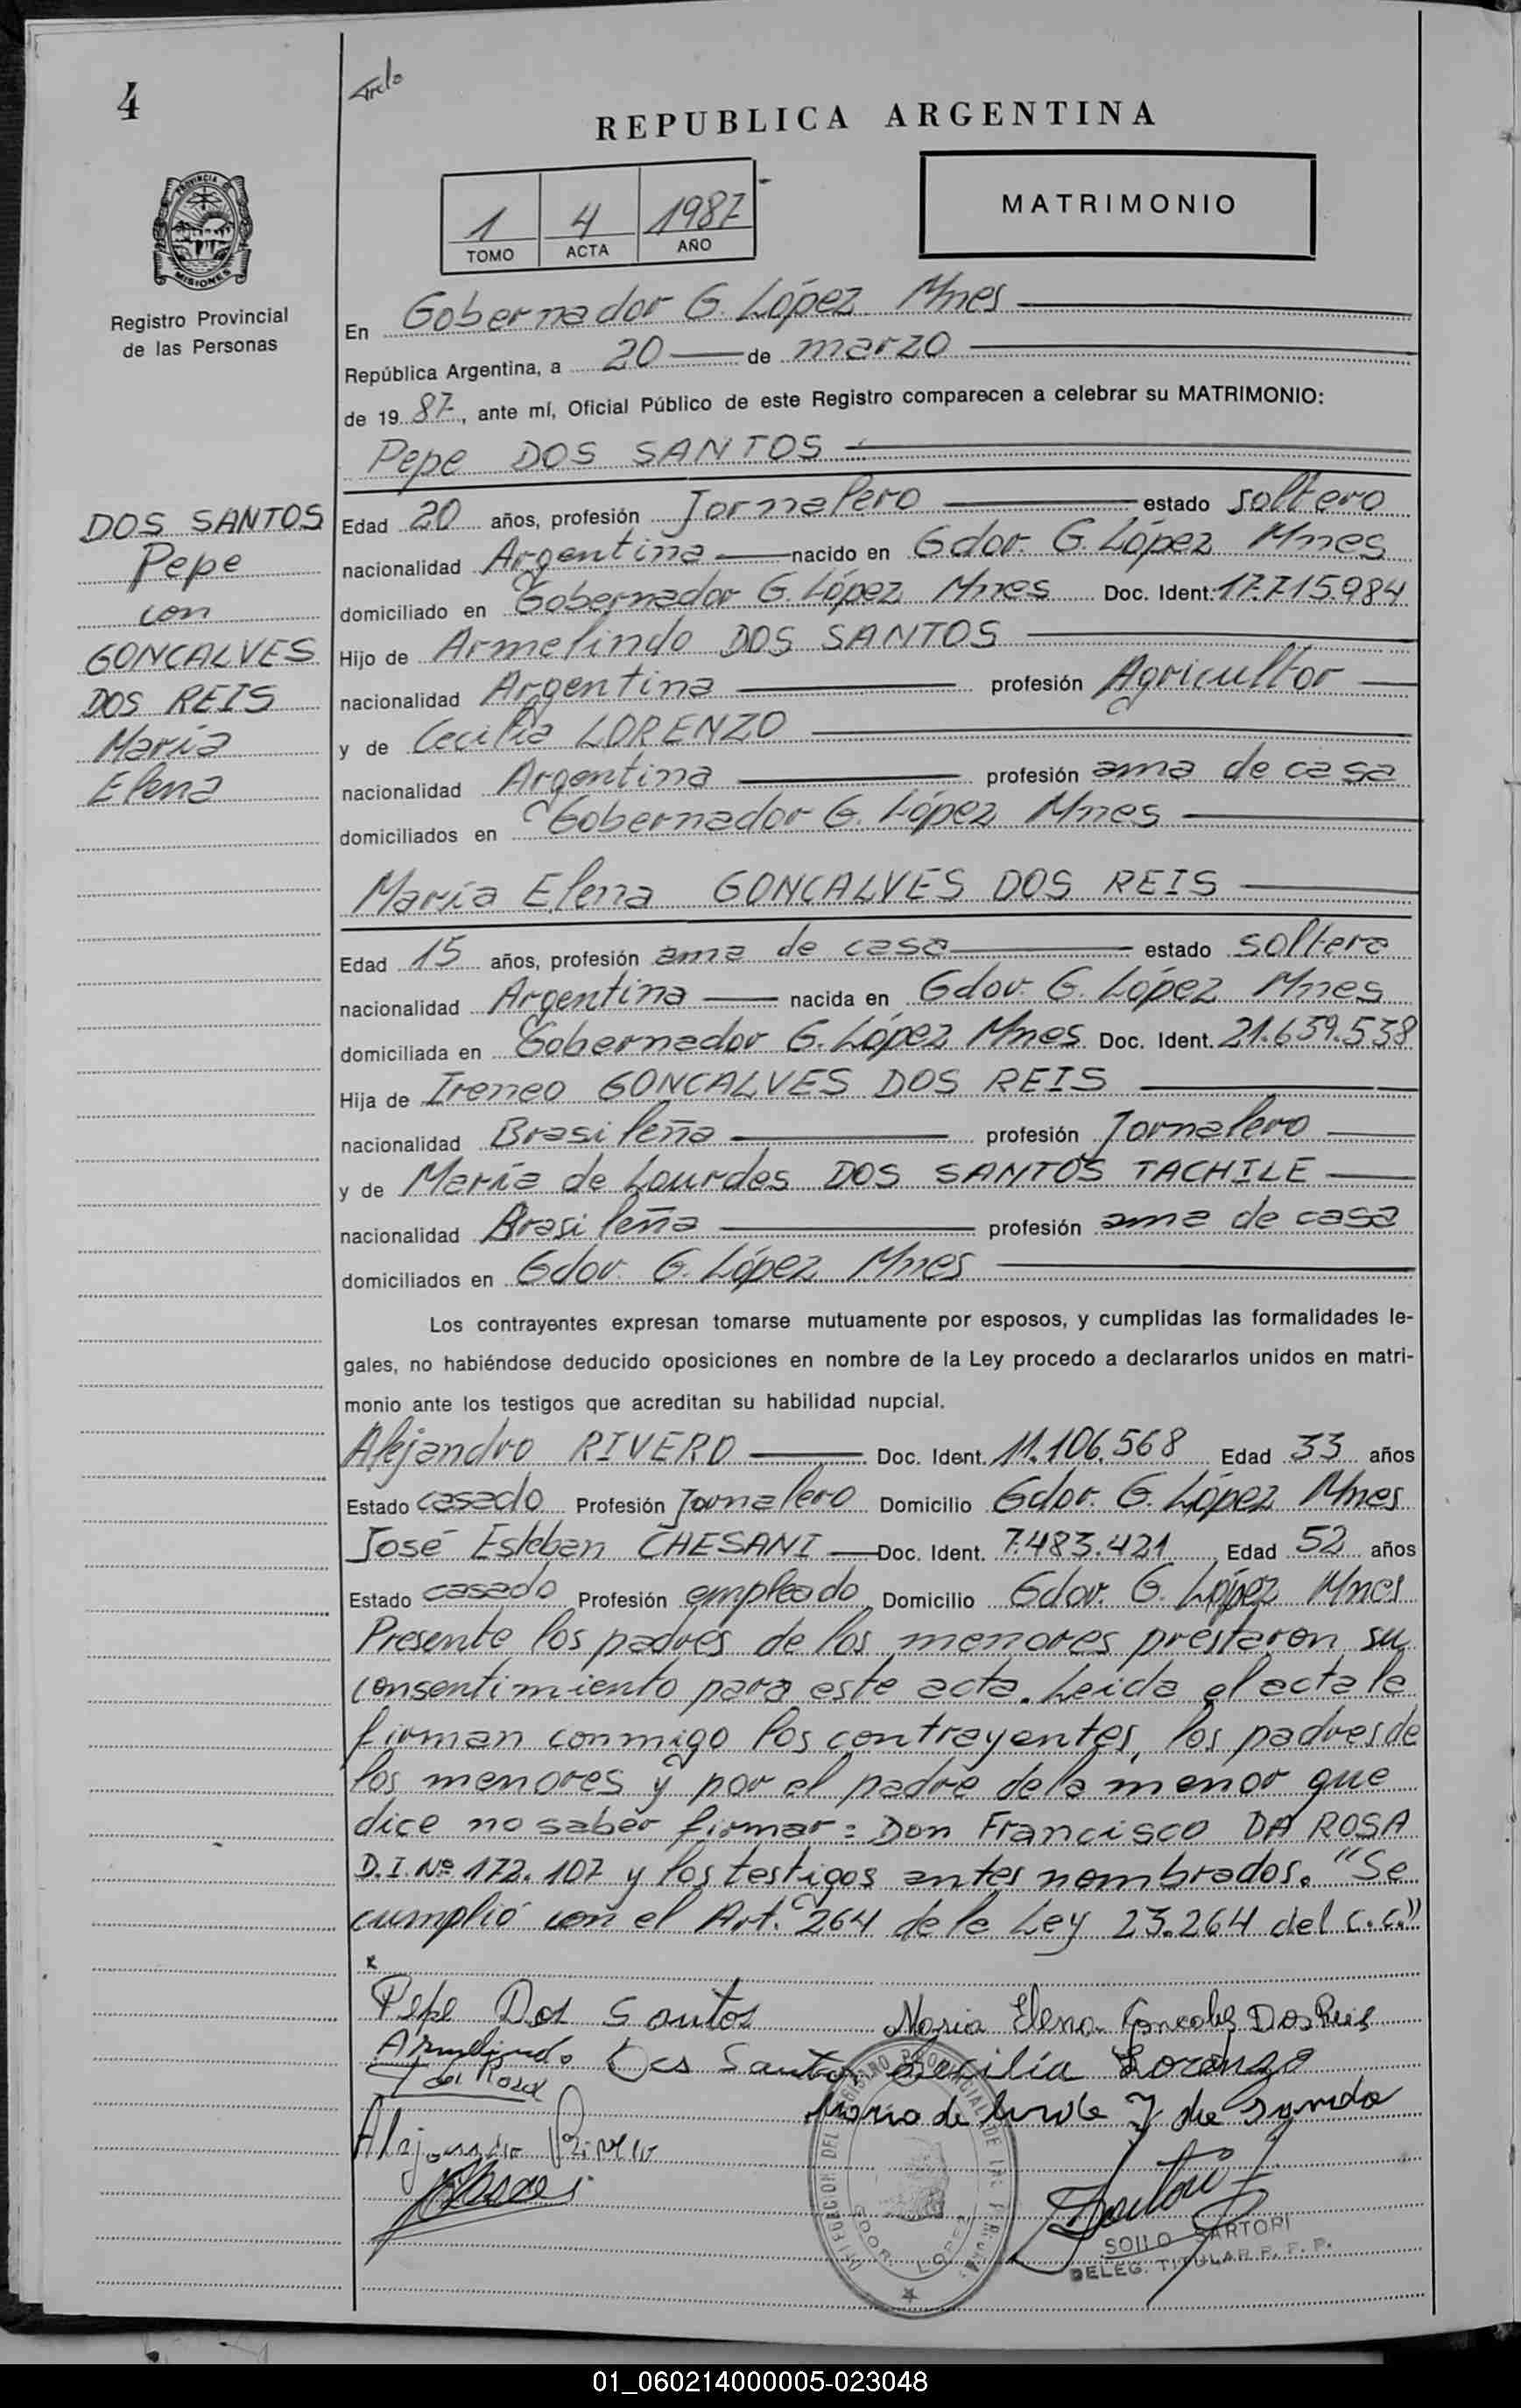 4
REPUBLICA ARGENTINA
1 4 1987
TOMO ACTA AÑO
MATRIMONIO
PROVINCIA DE
MISIONES
Registro Provincial
de las Personas
En Gobernador G. López Mnes
República Argentina, a 20 de marzo
de 1987, ante mí, Oficial Público de este Registro comparecen a celebrar su MATRIMONIO:
Pepe DOS SANTOS
DOS SANTOS
Pepe
con
GONCALVES
DOS REIS
María
Elena
Edad 20 años, profesión Jornalero estado soltero
nacionalidad Argentina nacido en Gdor. G. López Mnes
domiciliado en Gobernador G. López Mnes Doc. Ident. 17.715.984
Hijo de Armelindo DOS SANTOS
nacionalidad Argentina profesión Agricultor
y de Cecilia LORENZO
nacionalidad Argentina profesión ama de casa
domiciliados en Gobernador G. López Mnes
María Elena GONCALVES DOS REIS
Edad 15 años, profesión ama de casa estado soltera
nacionalidad Argentina nacida en Gdor. G. López Mnes
domiciliada en Gobernador G. López Mnes Doc. Ident. 21.639.538
Hija de Ireneo GONCALVES DOS REIS
nacionalidad Brasileña profesión Jornalero
y de María de Lourdes DOS SANTOS TACHILE
nacionalidad Brasileña profesión ama de casa
domiciliados en Gdor. G. López Mnes
Los contrayentes expresan tomarse mutuamente por esposos, y cumplidas las formalidades le-
gales, no habiéndose deducido oposiciones en nombre de la Ley procedo a declararlos unidos en matri-
monio ante los testigos que acreditan su habilidad nupcial.
Alejandro RIVERO Doc. Ident. 11.106.568 Edad 33 años
Estado casado Profesión Jornalero Domicilio Gdor. G. López Mnes
José Esteban CHESANI Doc. Ident. 7.483.421 Edad 52 años
Estado casado Profesión empleado Domicilio Gdor. G. López Mnes
Presente los padres de los menores prestaron su
consentimiento para este acta. Leida el acta la
firman conmigo los contrayentes, los padres de
los menores y por el padre de la menor que
dice no saber firmar: Don Francisco DA ROSA
D.I. Nº 172.107 y los testigos antes nombrados. "Se
cumplió con el Art. 264 de la Ley 23.264 del C.C."
Pepe Dos Santos Maria Elena Goncalves Dos Reis
Armelindo Dos Santos Cecilia Lorenzo
F da Rosa
Maria de
Alejandro Rivero
SOILO SARTORI
DELEG. TITULAR R. P. P.
01_060214000005-023048